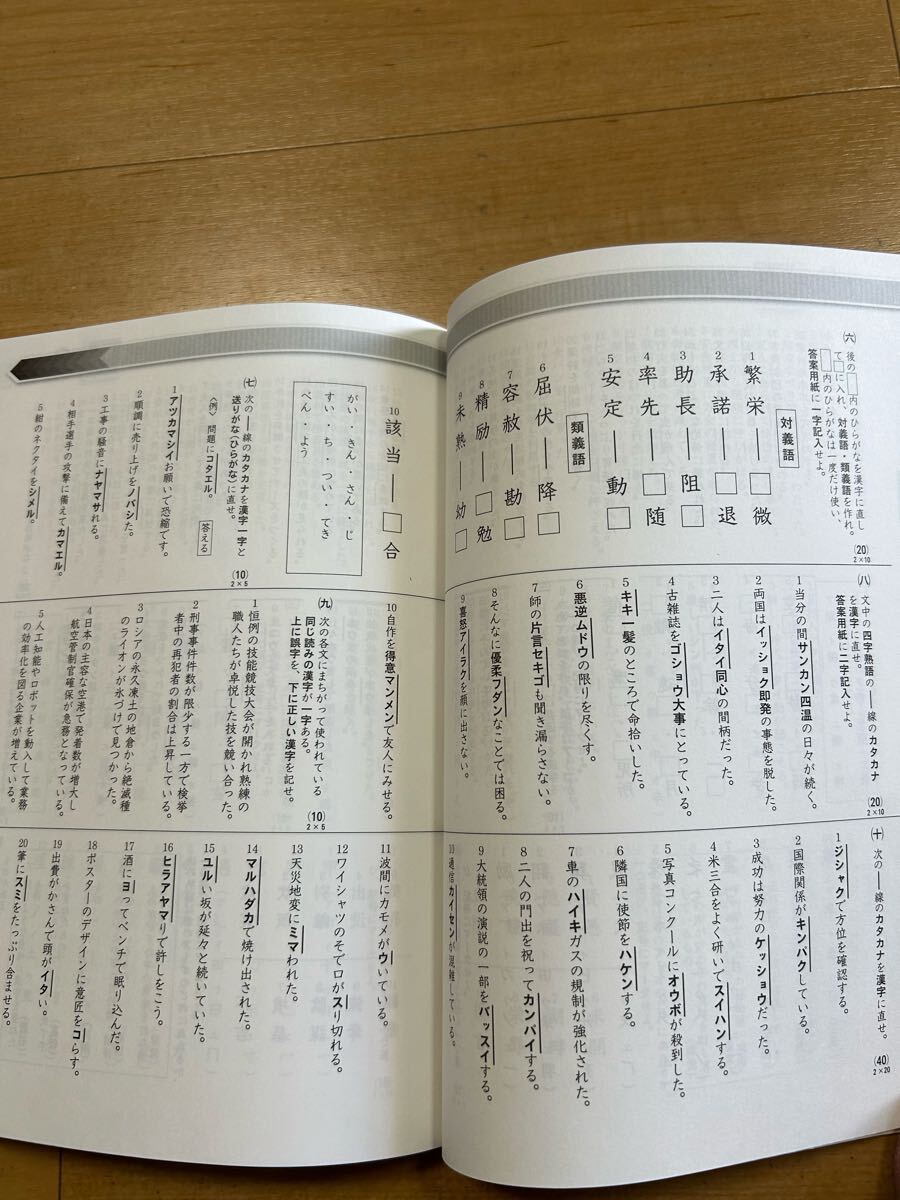 ㈥ 後の□内のひらがなを漢字に直し
て□に入れ、対義語・類義語を作れ。
□内のひらがなは一度だけ使い、
答案用紙に一字記入せよ。
(20)
2×10
対義語
1 繁栄―□微
2 承諾―□退
3 助長―阻□
4 率先―□随
5 安定―動□
類義語
6 屈伏―降□
7 容赦―勘□
8 精励―□勉
9 未熟―幼□
10 該当―□合
がい・きん・さん・じ
すい・ち・つい・てき
べん・よう
㈦ 次の―線のカタカナを漢字一字と
送りがな(ひらがな)に直せ。
〈例〉問題にコタエル。 答える
(10)
2×5
1 アツカマシイお願いで恐縮です。
2 順調に売り上げをノバシた。
3 工事の騒音にナヤマサれる。
4 相手選手の攻撃に備えてカマエル。
5 紺のネクタイをシメル。
㈧ 文中の四字熟語の―線のカタカナ
を漢字に直せ。
答案用紙に二字記入せよ。
(20)
2×10
1 当分の間サンカン四温の日々が続く。
2 両国はイッショク即発の事態を脱した。
3 二人はイタイ同心の間柄だった。
4 古雑誌をゴショウ大事にとっている。
5 キキ一髪のところで命拾いした。
6 悪逆ムドウの限りを尽くす。
7 師の片言セキゴも聞き漏らさない。
8 そんなに優柔フダンなことでは困る。
9 喜怒アイラクを顔に出さない。
10 自作を得意マンメンで友人にみせる。
㈨ 次の各文にまちがって使われている
同じ読みの漢字が一字ある。
上に誤字を、下に正しい漢字を記せ。
(10)
2×5
1 恒例の技能競技大会が開かれ熟練の
職人たちが卓悦した技を競い合った。
2 刑事事件数が限少する一方で検挙
者中の再犯者の割合は上昇している。
3 ロシアの永久凍土の地倉から絶滅種
のライオンが氷づけで見つかった。
4 日本の主容な空港で発着数が増大し
航空管制官確保が急務となっている。
5 人工知能やロボットを動入して業務
の効率化を図る企業が増えている。
㈩ 次の―線のカタカナを漢字に直せ。
(40)
2×20
1 ジシャクで方位を確認する。
2 国際関係がキンパクしている。
3 成功は努力のケッショウだった。
4 米三合をよく研いでスイハンする。
5 写真コンクールにオウボが殺到した。
6 隣国に使節をハケンする。
7 車のハイキガスの規制が強化された。
8 二人の門出を祝ってカンパイする。
9 大統領の演説の一部をバッスイする。
10 通信カイセンが混雑している。
11 波間にカモメがウいている。
12 ワイシャツのそで口がスり切れる。
13 天災地変にミマわれた。
14 マルハダカで焼け出された。
15 ユルい坂が延々と続いていた。
16 ヒラアヤマりで許しをこう。
17 酒にヨってベンチで眠り込んだ。
18 ポスターのデザインに意匠をコらす。
19 出費がかさんで頭がイタい。
20 筆にスミをたっぷり含ませる。